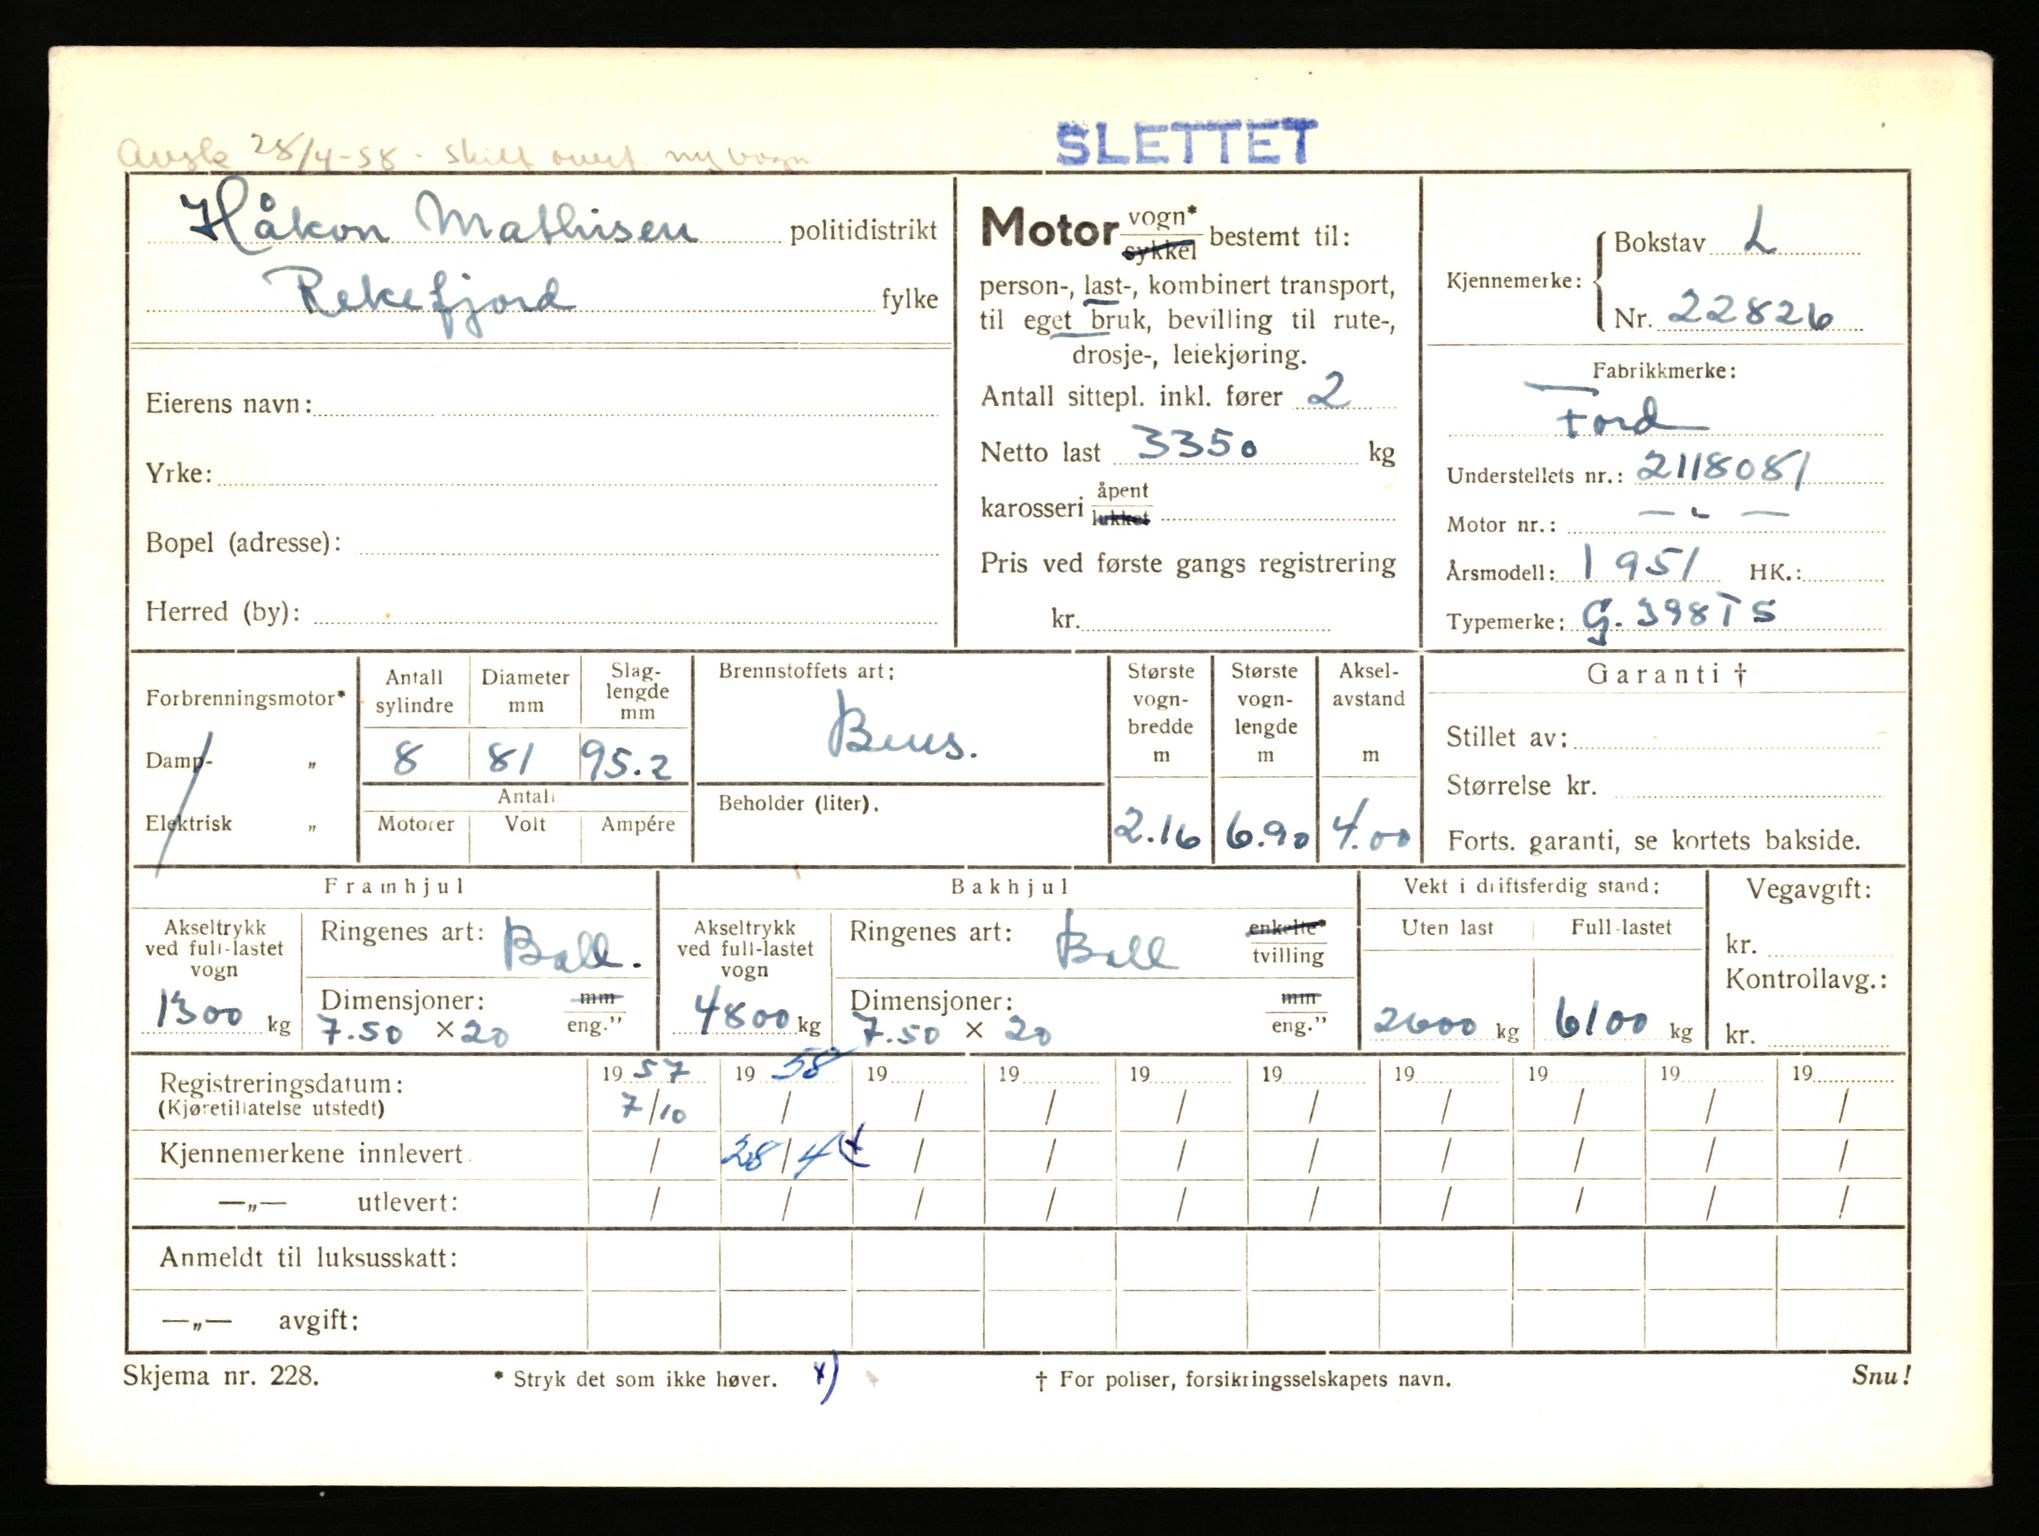 SLETTET
Avsk 28/4-58 - skilt overf. ny vogn
Håkon Mathisen politidistrikt
Rekefjord fylke
Eierens navn:
Yrke:
Bopel (adresse):
Herred (by):
Motor vogn* sykkel bestemt til:
person-, last-, kombinert transport,
til eget bruk, bevilling til rute-,
drosje-, leiekjøring.
Antall sittepl. inkl. fører 2
Netto last 3350 kg
karosseri åpent lukket
Pris ved første gangs registrering
kr.
Kjennemerke: Bokstav L
Nr. 22826
Fabrikkmerke:
Ford
Understellets nr.: 2118081
Motor nr.: — " —
Årsmodell: 1951 HK.:
Typemerke: G. 398TS
Forbrenningsmotor*
Damp- „
Elektrisk „
Antall sylindre
8
Diameter mm
81
Slag-lengde mm
95.2
Antall
Motorer Volt Ampére
Brennstoffets art:
Bens.
Beholder (liter).
Største vogn-bredde m
2.16
Største vogn-lengde m
6.90
Aksel-avstand m
4.00
Garanti †
Stillet av:
Størrelse kr.
Forts. garanti, se kortets bakside.
Framhjul
Akseltrykk ved full-lastet vogn
1300 kg
Ringenes art: Ball.
Dimensjoner: mm
7.50 × 20 eng."
Bakhjul
Akseltrykk ved full-lastet vogn
4800 kg
Ringenes art: Ball enkelte* tvilling
Dimensjoner: mm
7.50 × 20 eng."
Vekt i driftsferdig stand:
Uten last Full-lastet
2600 kg 6100 kg
Vegavgift:
kr.
Kontrollavg.:
kr.
Registreringsdatum: 19 57 19 58 19 19 19 19 19 19 19 19
(Kjøretillatelse utstedt) 7/10 / / / / / / / / /
Kjennemerkene innlevert / 28/4 x / / / / / / / /
—„— utlevert: / / / / / / / / / /
Anmeldt til luksusskatt:
—„— avgift:
Skjema nr. 228. * Stryk det som ikke høver. x) † For poliser, forsikringsselskapets navn. Snu!